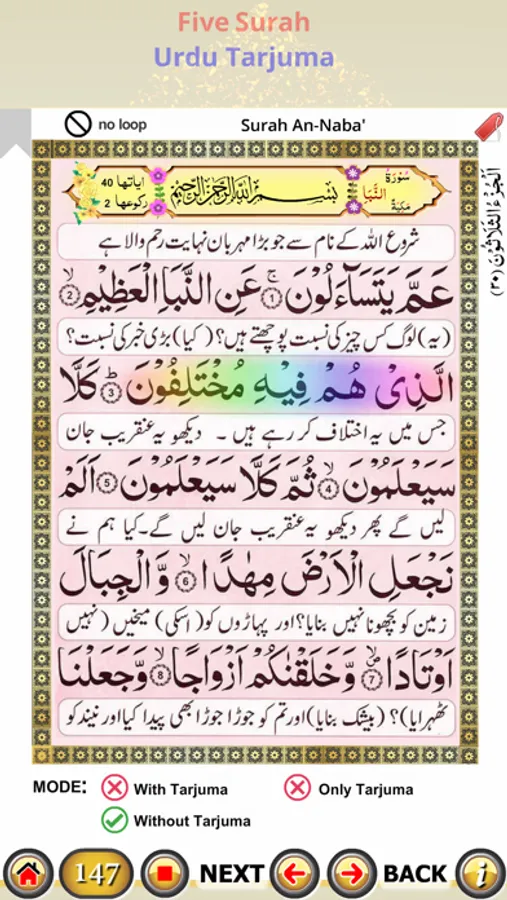 Five Surah
Urdu Tarjuma
no loop
Surah An-Naba'
اَلْجُزْءُ الثَّلَاثُوْنَ (۳۰)
سُوْرَةُ النَّبَاِ مَكِّيَّةٌ
بِسْمِ اللّٰهِ الرَّحْمٰنِ الرَّحِيْمِ
اٰیاتها 40
رکوعها 2
شروع اللہ کے نام سے جو بڑا مہربان نہایت رحم والا ہے
عَمَّ يَتَسَآءَلُوْنَ ۚ ۝1 عَنِ النَّبَاِ الْعَظِيْمِ ۙ ۝2
(یہ) لوگ کس چیز کی نسبت پوچھتے ہیں؟ (کیا) بڑی خبر کی نسبت؟
الَّذِىْ هُمْ فِيْهِ مُخْتَلِفُوْنَ ؕ ۝3 كَلَّا
جس میں یہ اختلاف کر رہے ہیں ۔ دیکھو یہ عنقریب جان
سَيَعْلَمُوْنَ ۙ ۝4 ثُمَّ كَلَّا سَيَعْلَمُوْنَ ۝5 اَلَمْ
لیں گے پھر دیکھو یہ عنقریب جان لیں گے۔ کیا ہم نے
نَجْعَلِ الْاَرْضَ مِهٰدًا ۙ ۝6 وَّالْجِبَالَ
زمین کو بچھونا نہیں بنایا؟ اور پہاڑوں کو (اسکی) میخیں (نہیں
اَوْتَادًا ۪ۙ ۝7 وَّخَلَقْنٰكُمْ اَزْوَاجًا ۙ ۝8 وَّجَعَلْنَا
ٹھہرایا)؟ (بیشک بنایا) اور تم کو جوڑا جوڑا بھی پیدا کیا اور نیند کو
MODE: With Tarjuma Only Tarjuma
Without Tarjuma
147 NEXT BACK i